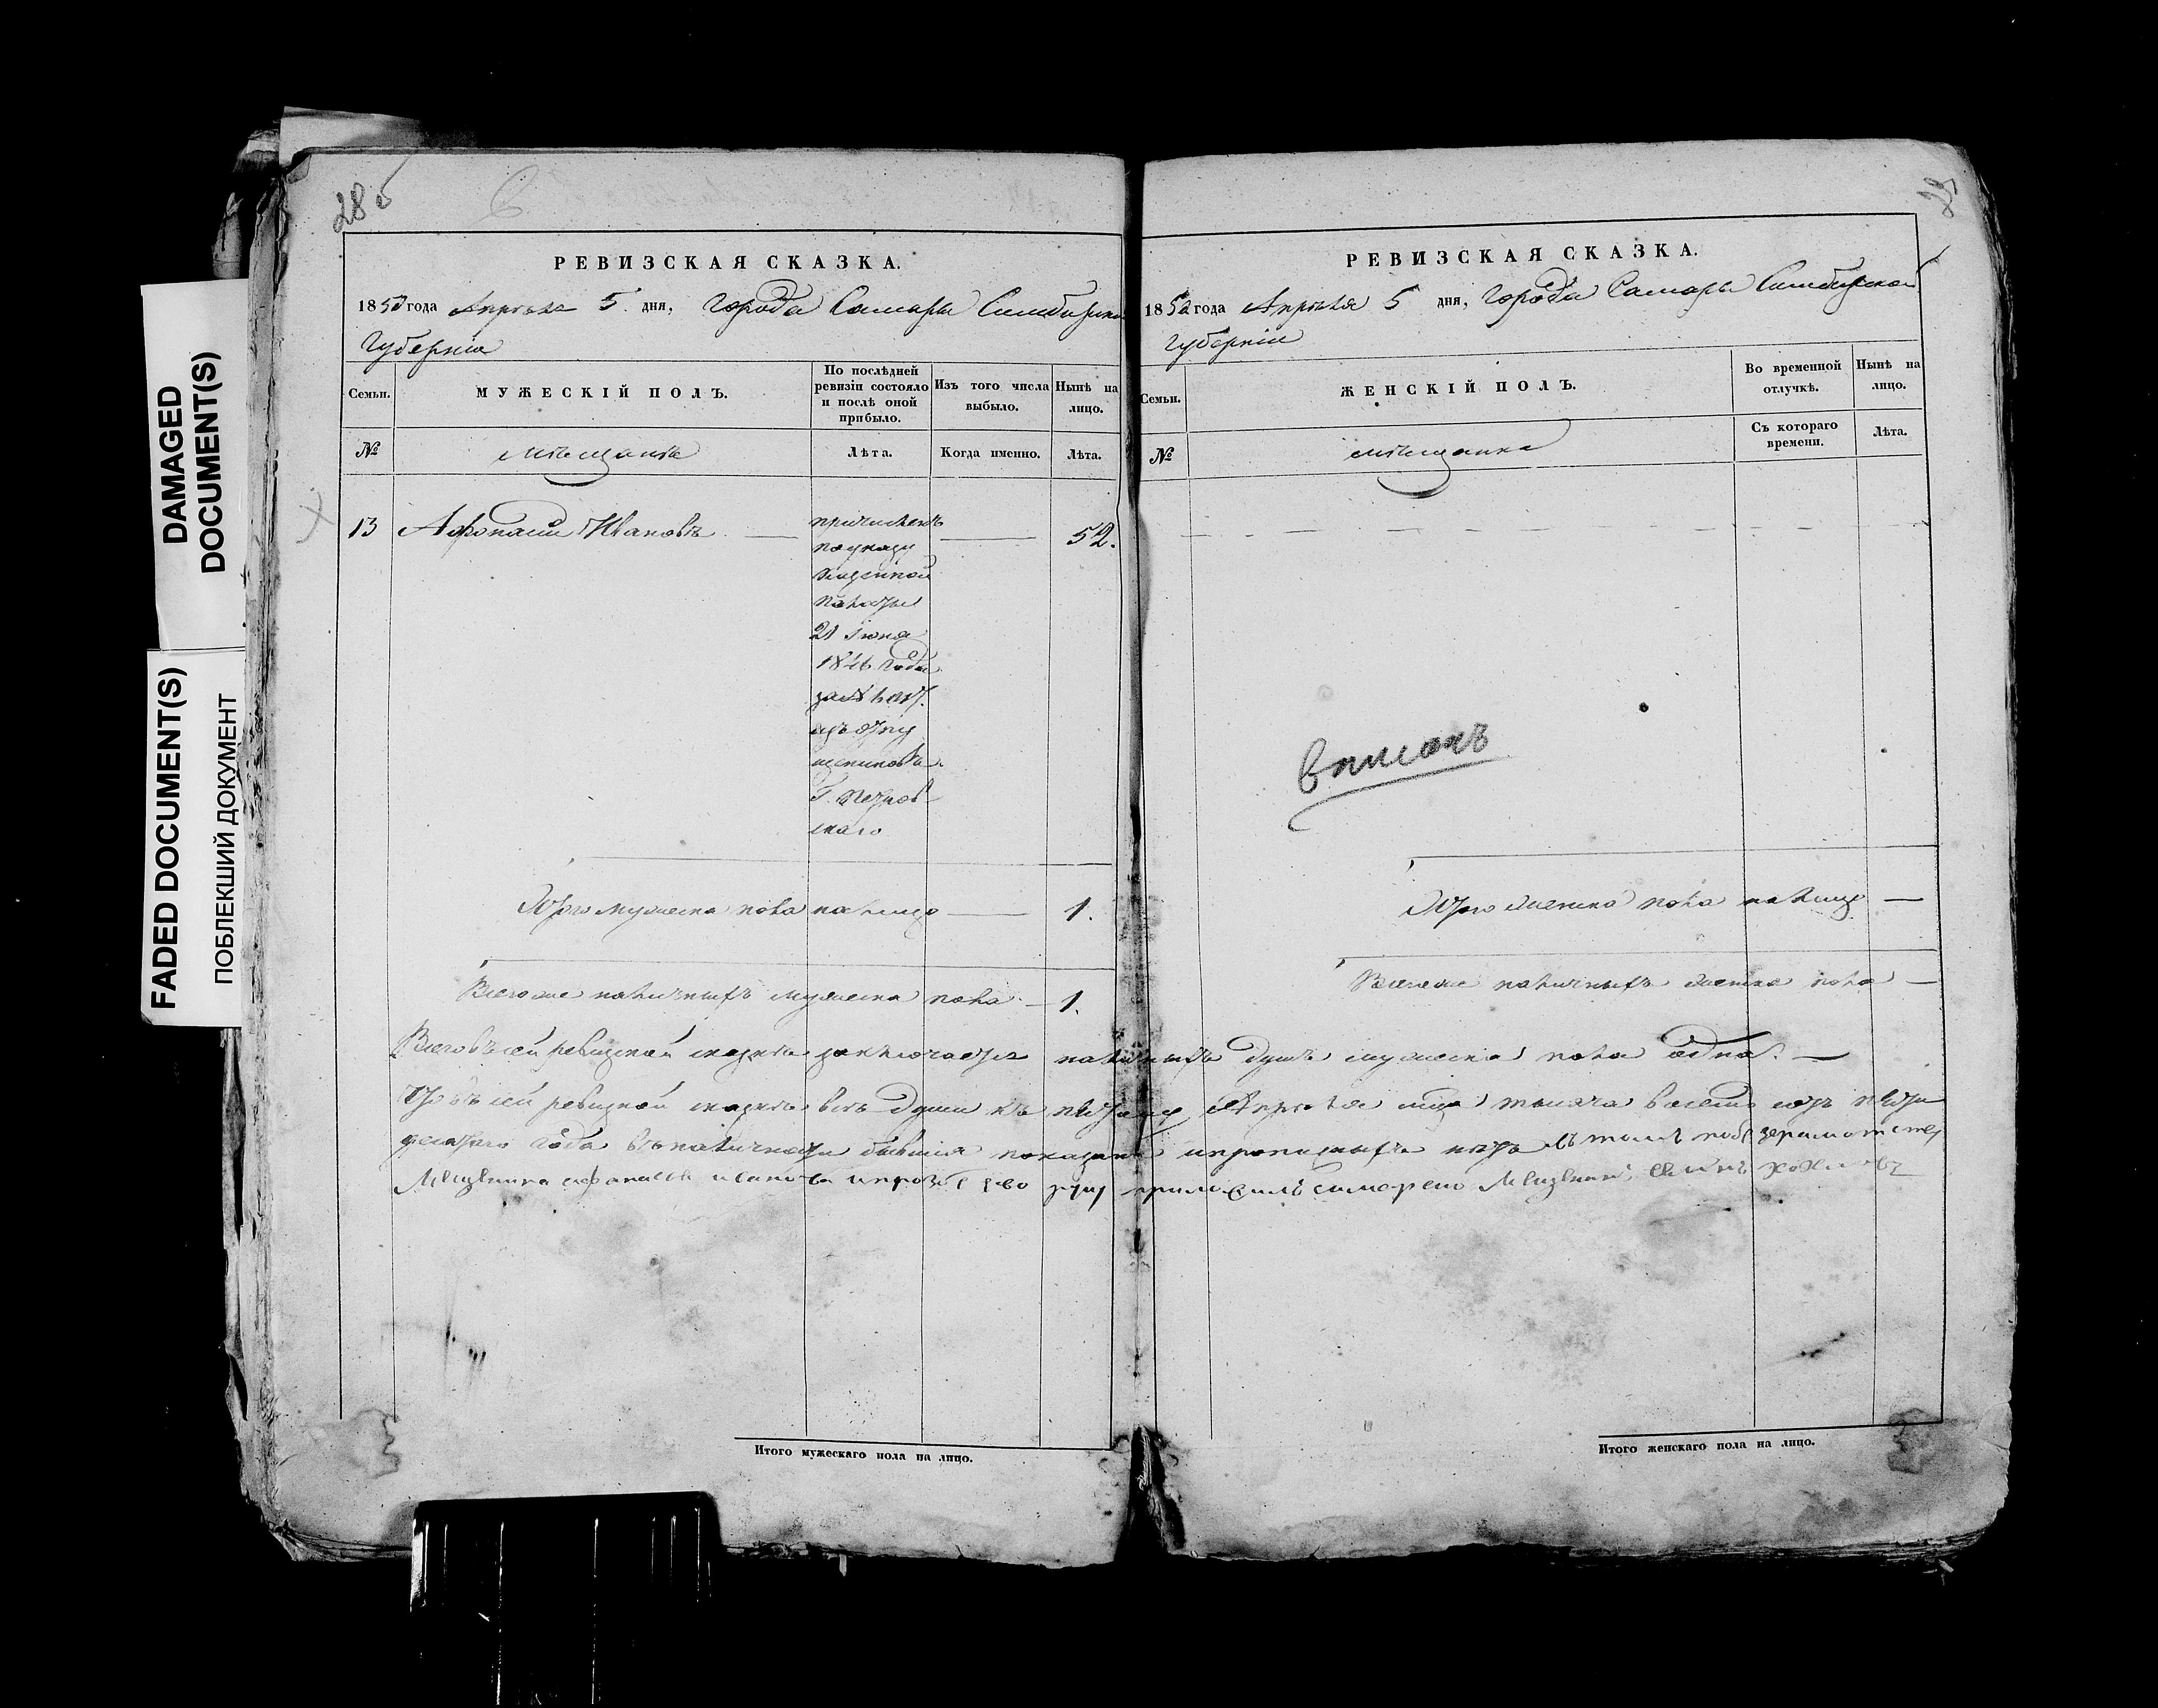 DAMAGED
DOCUMENT(S)
FADED DOCUMENT(S)
ПОБЛЕКШИЙ ДОКУМЕНТ
28 б
РЕВИЗСКАЯ СКАЗКА.
1850 года Апрѣля 5. дня, города Самары Симбирской
губерніи
Семьи.
МУЖЕСКІЙ ПОЛЪ.
По послѣдней
ревизіи состояло
и послѣ оной
прибыло.
Изъ того числа
выбыло.
Нынѣ на
лицо.
№
мѣщанъ
Лѣта.
Когда именно.
Лѣта.
13 Афонасій Ивановъ
52.
причисленъ
по указу
казенной
палаты
21 Іюня
1846 года
за №
изъ отпу
щениковъ
Г. Петров
скаго
Итого мужеска пола на лицо — 1.
Всего же наличныхъ мужеска пола — 1.
29
РЕВИЗСКАЯ СКАЗКА.
1850 года Апрѣля 5 дня, города Самары Симбирской
губерніи
Семьи.
ЖЕНСКІЙ ПОЛЪ.
Во временной
отлучкѣ.
Нынѣ на
лицо.
№
мѣщанка
Съ котораго
времени.
Лѣта.
вписанъ
Итого женска пола на лицо —
Всего же наличныхъ женска пола —
Всего въ сей ревизской сказкѣ заключается наличныхъ душъ мужеска пола одна. —
Что въ сей ревизкой сказкѣ всѣ души къ пятому Апрѣля мца тысяча восемь сотъ пяти
десятаго года въ наличности бывшія показаны и прописныхъ нѣтъ въ томъ
руку приложилъ
Итого мужескаго пола на лицо.
Итого женскаго пола на лицо.